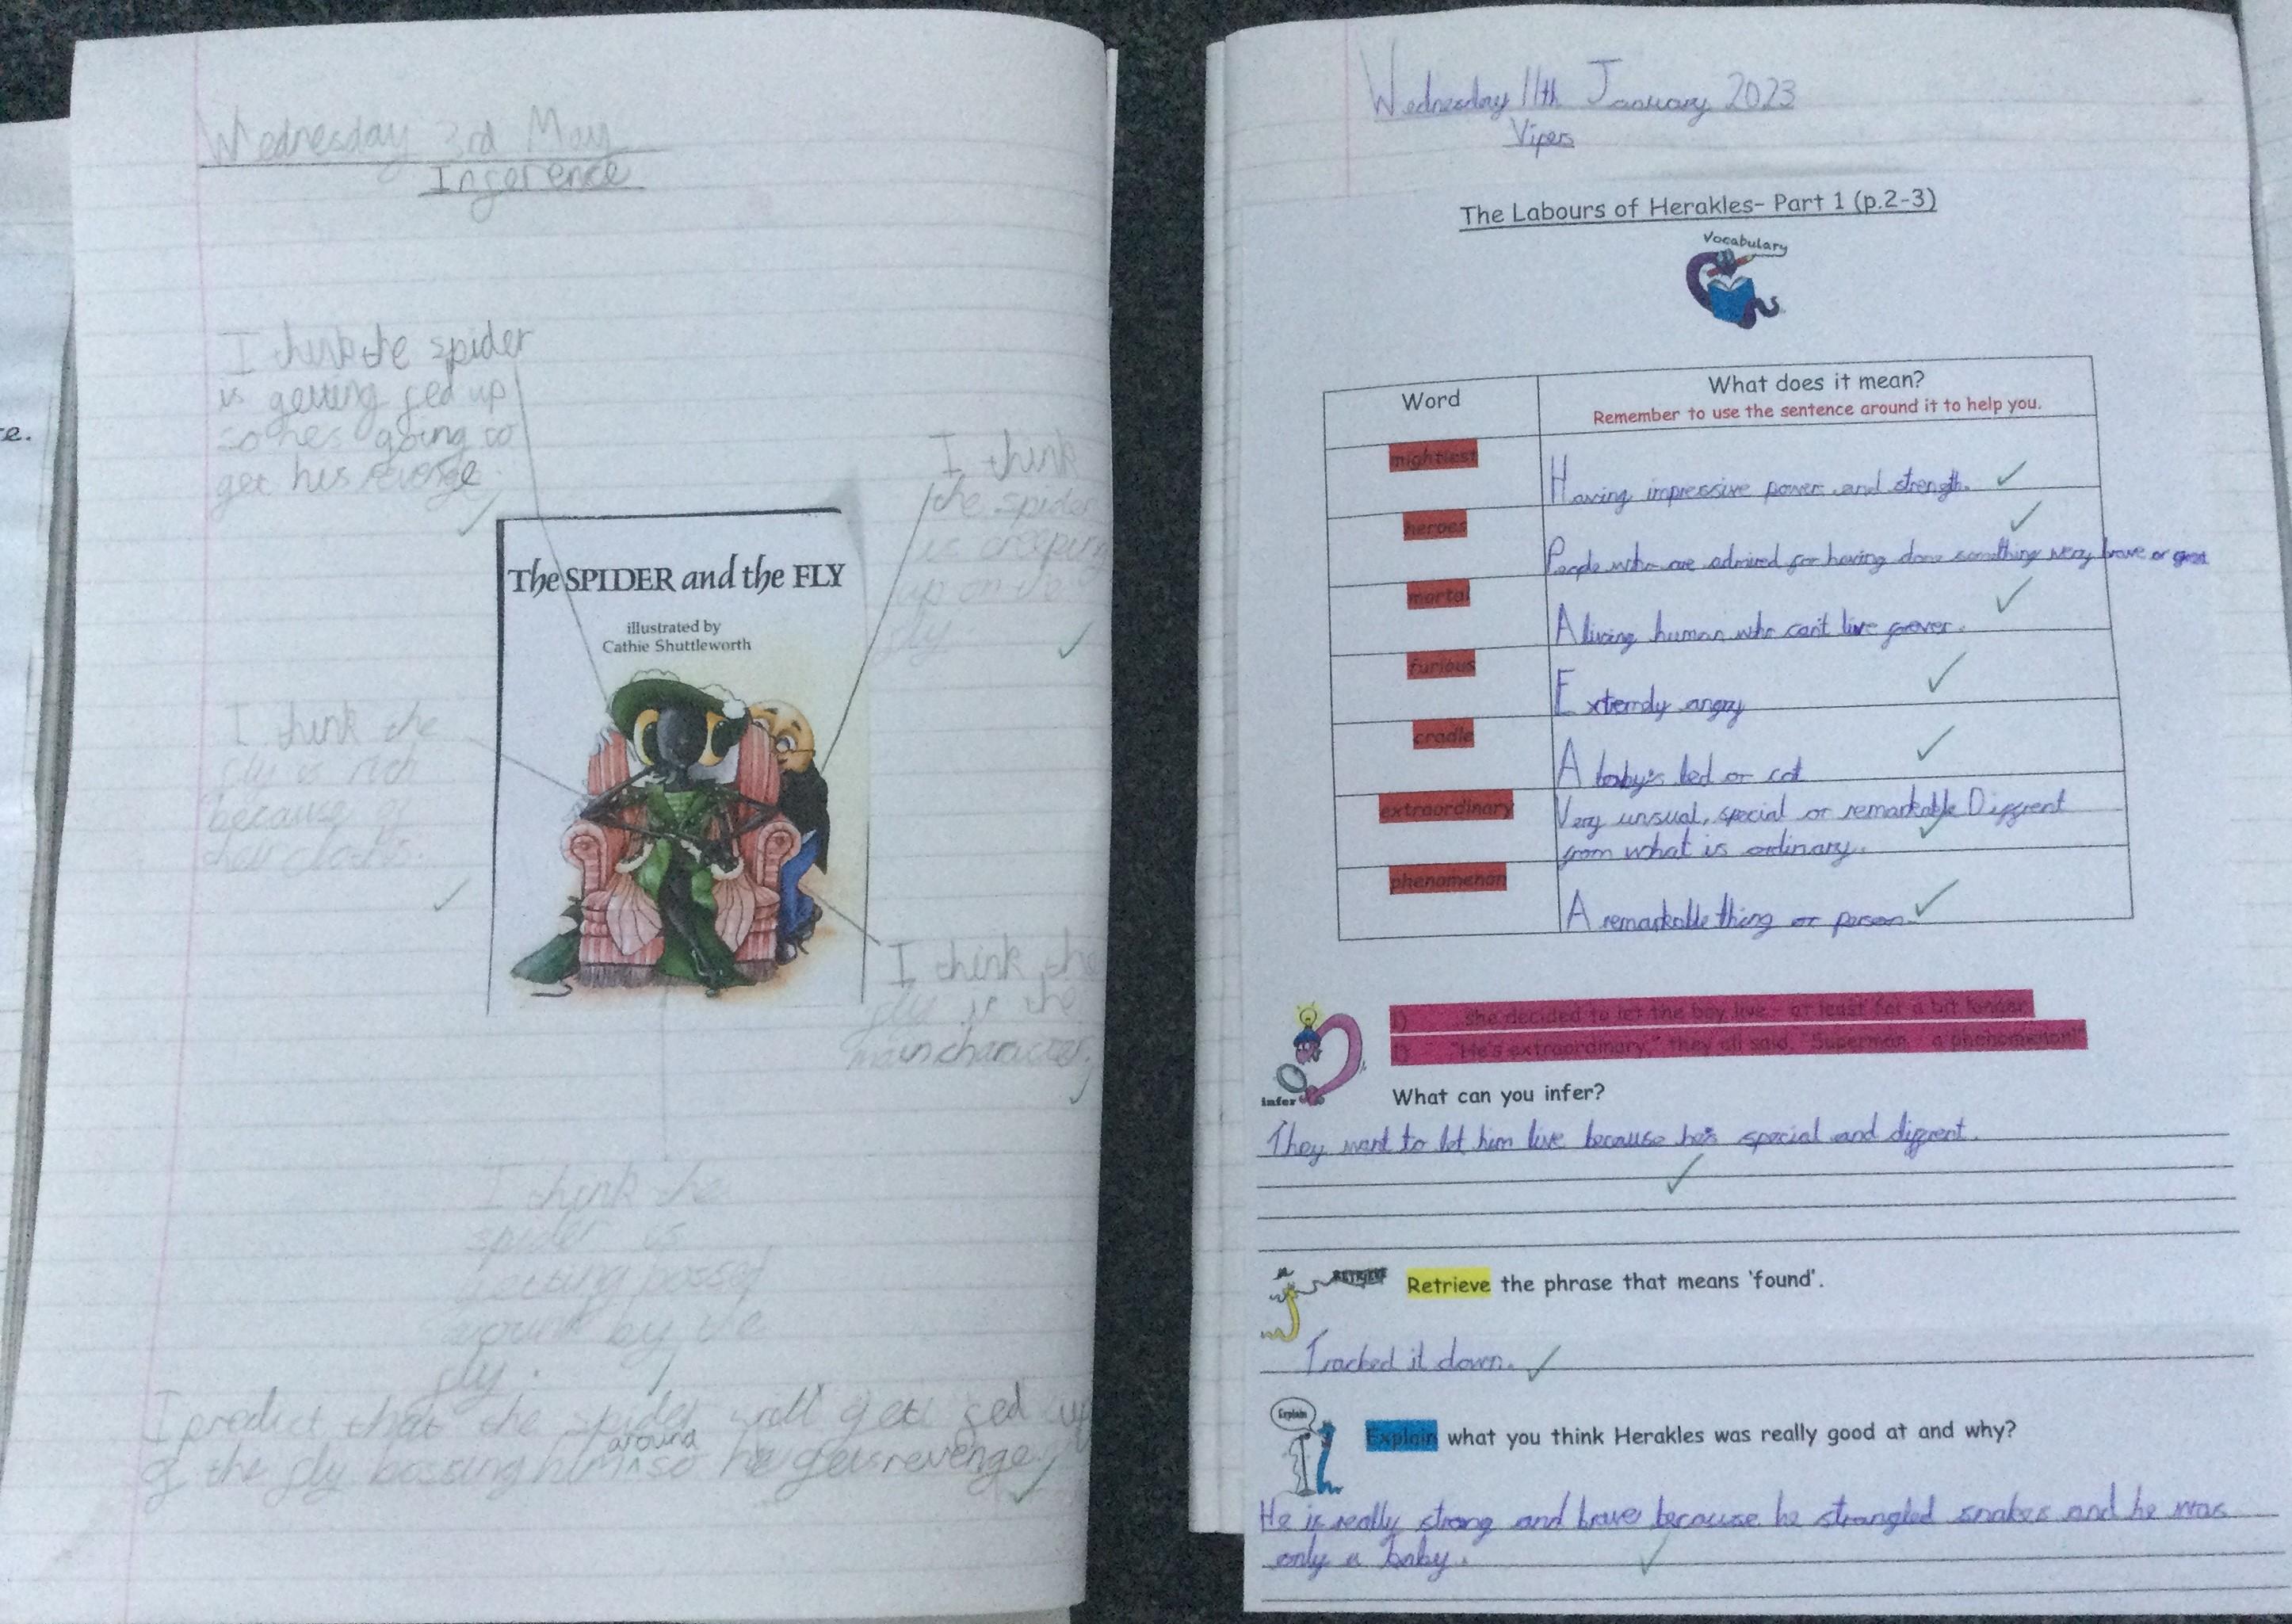 e.
Wednesday 3rd May
Inference
I think the spider
is getting fed up
so hes going to
get his revenge.
I think
the spider
is creeping
up on the
fly
The SPIDER and the FLY
illustrated by
Cathie Shuttleworth
I think the
fly is rich
because of
their clothes.
I think the
fly is the
main character.
I think the
spider is
getting bossed
around by the
fly.
I predict that the spider will get fed up
of the fly bossing him around so he gets revenge.
Wednesday 11th January 2023
Vipers
The Labours of Herakles- Part 1 (p.2-3)
Vocabulary
Word
What does it mean?
Remember to use the sentence around it to help you.
mightiest
Having impressive power and strength.
heroes
People who are admired for having done something very brave or great
mortal
A living human who can't live forever.
furious
Extremly angry
cradle
A baby's bed or cot
extraordinary
Very unsual, special or remarkable Diffrent
from what is ordinary.
phenomenon
A remarkable thing or person.
1) She decided to let the boy live - at least for a bit longer
1) "He's extraordinary," they all said. "Superman - a phenomenon!"
infer
What can you infer?
They want to let him live because he's special and diffrent.
RETRIEVE
Retrieve the phrase that means 'found'.
Tracked it down.
Explain
Explain what you think Herakles was really good at and why?
He is really strong and brave because he strangled snakes and he was
only a baby.